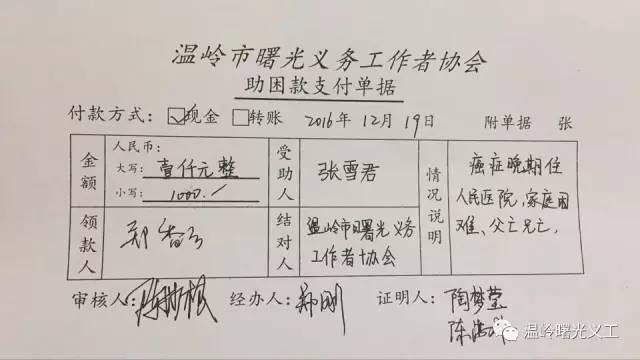 温岭市曙光义务工作者协会
助困款支付单据
付款方式: ☑现金 □转账 2016年12月19日 附单据 张
金额
人民币:
大写: 壹仟元整
小写: 1000./
受助人
张雪君
情况说明
癌症晚期住
人民医院,家庭困
难、父亡兄亡,
领款人
郑
结对人
温岭市曙光义务
工作者协会
审核人: 经办人: 郑刚 证明人: 陶梦莹
陈
温岭曙光义工